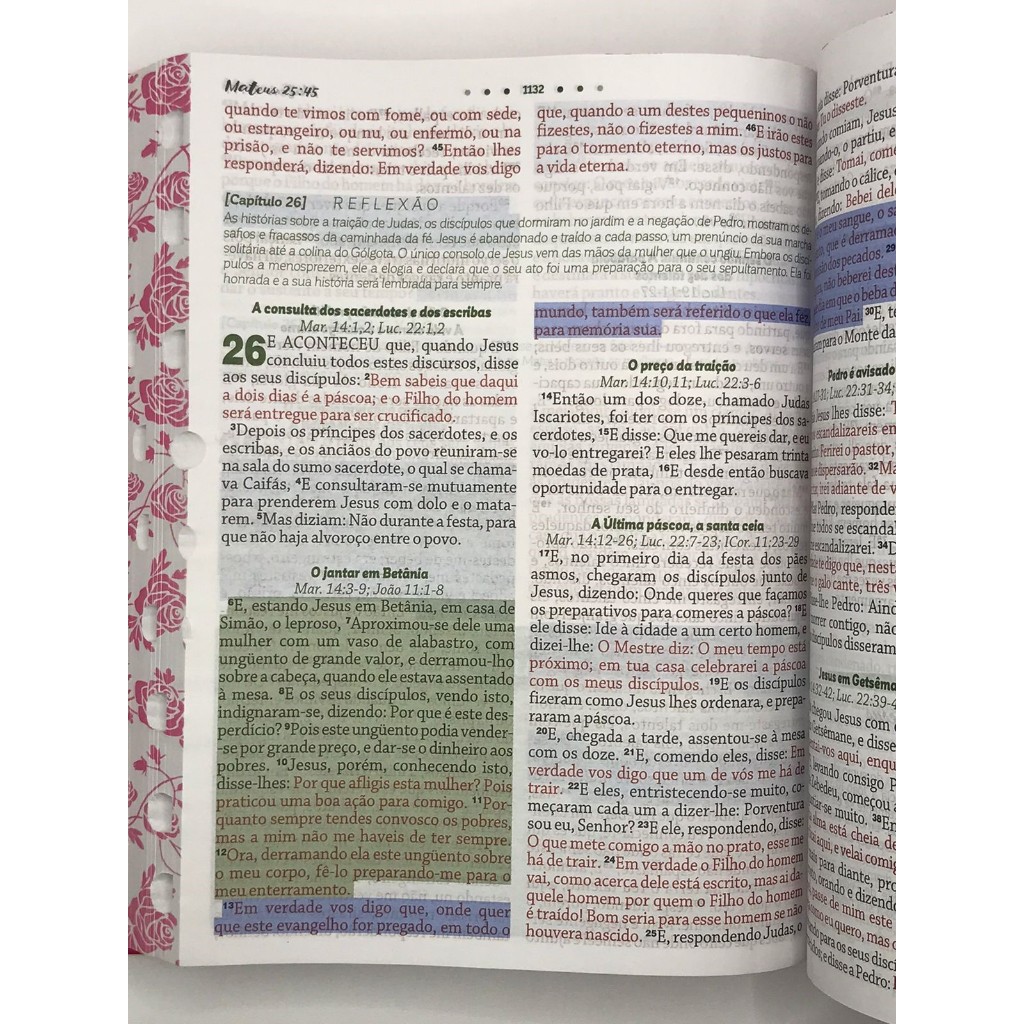 Mateus 25:45
1132
quando te vimos com fome, ou com sede,
ou estrangeiro, ou nu, ou enfermo, ou na
prisão, e não te servimos? 45Então lhes
responderá, dizendo: Em verdade vos digo
que, quando a um destes pequeninos o não
fizestes, não o fizestes a mim. 46E irão estes
para o tormento eterno, mas os justos para
a vida eterna.
[Capítulo 26] REFLEXÃO
As histórias sobre a traição de Judas, os discípulos que dormiram no jardim e a negação de Pedro, mostram os de-
safios e fracassos da caminhada da fé. Jesus é abandonado e traído a cada passo, um prenúncio da sua marcha
solitária até a colina do Gólgota. O único consolo de Jesus vem das mãos da mulher que o ungiu. Embora os discí-
pulos a menosprezem, ele a elogia e declara que o seu ato foi uma preparação para o seu sepultamento. Ela foi
honrada e a sua história será lembrada para sempre.
A consulta dos sacerdotes e dos escribas
Mar. 14:1,2; Luc. 22:1,2
26 E ACONTECEU que, quando Jesus
concluiu todos estes discursos, disse
aos seus discípulos: 2Bem sabeis que daqui
a dois dias é a páscoa; e o Filho do homem
será entregue para ser crucificado.
3Depois os príncipes dos sacerdotes, e os
escribas, e os anciãos do povo reuniram-se
na sala do sumo sacerdote, o qual se chama-
va Caifás, 4E consultaram-se mutuamente
para prenderem Jesus com dolo e o mata-
rem. 5Mas diziam: Não durante a festa, para
que não haja alvoroço entre o povo.
O jantar em Betânia
Mar. 14:3-9; João 11:1-8
6E, estando Jesus em Betânia, em casa de
Simão, o leproso, 7Aproximou-se dele uma
mulher com um vaso de alabastro, com
ungüento de grande valor, e derramou-lho
sobre a cabeça, quando ele estava assentado
à mesa. 8E os seus discípulos, vendo isto,
indignaram-se, dizendo: Por que é este des-
perdício? 9Pois este ungüento podia vender-
se por grande preço, e dar-se o dinheiro aos
pobres. 10Jesus, porém, conhecendo isto,
disse-lhes: Por que afligis esta mulher? Pois
praticou uma boa ação para comigo. 11Por-
quanto sempre tendes convosco os pobres,
mas a mim não me haveis de ter sempre.
12Ora, derramando ela este ungüento sobre
o meu corpo, fê-lo preparando-me para o
meu enterramento.
13Em verdade vos digo que, onde quer
que este evangelho for pregado, em todo o
mundo, também será referido o que ela fez,
para memória sua.
O preço da traição
Mar. 14:10,11; Luc. 22:3-6
14Então um dos doze, chamado Judas
Iscariotes, foi ter com os príncipes dos sa-
cerdotes, 15E disse: Que me quereis dar, e eu
vo-lo entregarei? E eles lhe pesaram trinta
moedas de prata, 16E desde então buscava
oportunidade para o entregar.
A Última páscoa, a santa ceia
Mar. 14:12-26; Luc. 22:7-23; ICor. 11:23-29
17E, no primeiro dia da festa dos pães
asmos, chegaram os discípulos junto de
Jesus, dizendo: Onde queres que façamos
os preparativos para comeres a páscoa? 18E
ele disse: Ide à cidade a um certo homem, e
dizei-lhe: O Mestre diz: O meu tempo está
próximo; em tua casa celebrarei a páscoa
com os meus discípulos. 19E os discípulos
fizeram como Jesus lhes ordenara, e prepa-
raram a páscoa.
20E, chegada a tarde, assentou-se à mesa
com os doze. 21E, comendo eles, disse: Em
verdade vos digo que um de vós me há de
trair. 22E eles, entristecendo-se muito, co-
meçaram cada um a dizer-lhe: Porventura
sou eu, Senhor? 23E ele, respondendo, disse:
O que mete comigo a mão no prato, esse me
há de trair. 24Em verdade o Filho do homem
vai, como acerca dele está escrito, mas ai da-
quele homem por quem o Filho do homem
é traído! Bom seria para esse homem se não
houvera nascido. 25E, respondendo Judas, o
disse: Porventura
o disseste.
comiam, Jesus
o partiu, e
disse: Tomai, come
tomando o cálice, e
dizendo: Bebei dele
meu sangue, o sa
que é derrama
dos pecados. 29
não beberei dest
em que o beba d
de meu Pai. 30E, te
para o Monte da
Pedro é avisado
Luc. 22:31-34;
Jesus lhes disse: T
escandalizareis en
Ferirei o pastor,
dispersarão. 32Ma
irei adiante de v
Pedro, responden
todos se escandal
escandalizarei. 34D
te digo que, nest
o galo cante, três v
Pedro: Aind
contigo, não
discípulos disseram
Jesus em Getsêma
32-42; Luc. 22:39-4
chegou Jesus com
Getsêmane, e disse
aqui, enqu
levando consigo P
Zebedeu, começou
muito. 38En
alma está cheia de
aqui, e velai comig
mais para diante, pro
orando e dizendo
passe de mim este
eu quero, mas c
para os seus disc
e disse a Pedro: